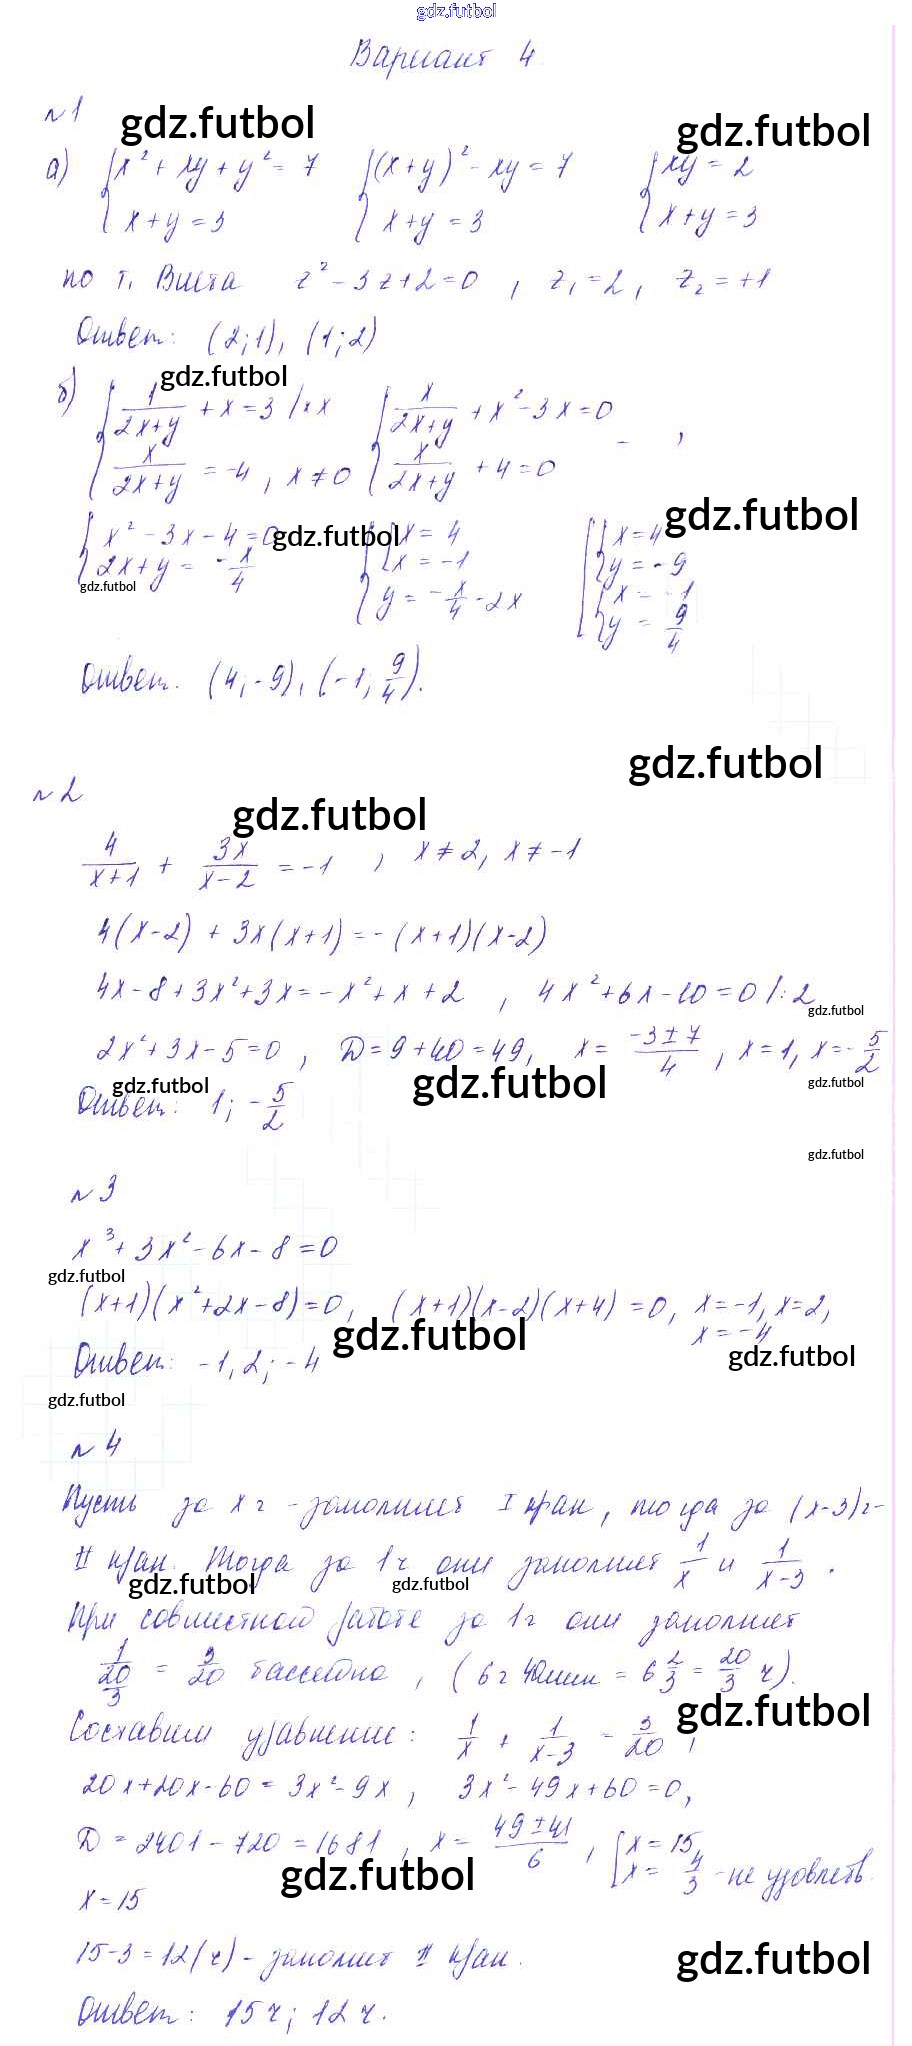 gdz.futbol
Вариант 4
№1
gdz.futbol
gdz.futbol
а) {x² + xy + y² = 7 {(x+y)² - xy = 7 {xy = 2
x+y = 3 x+y = 3 x+y = 3
по т. Виета z² - 3z + 2 = 0, z₁ = 2, z₂ = +1
Ответ: (2;1), (1;2)
gdz.futbol
б) {1/(2x+y) + x = 3 /·x {x/(2x+y) + x² - 3x = 0
x/(2x+y) = -4, x ≠ 0 x/(2x+y) + 4 = 0 ,
gdz.futbol
gdz.futbol
gdz.futbol
{x² - 3x - 4 = 0 {[x = 4 [{x = 4
2x+y = -x/4 x = -1 y = -9
y = -x/4 - 2x {x = -1
y = 9/4
Ответ. (4;-9), (-1; 9/4).
gdz.futbol
№2
gdz.futbol
4/(x+1) + 3x/(x-2) = -1 , x ≠ 2, x ≠ -1
4(x-2) + 3x(x+1) = -(x+1)(x-2)
4x - 8 + 3x² + 3x = -x² + x + 2 , 4x² + 6x - 10 = 0 /:2
gdz.futbol
2x² + 3x - 5 = 0 , D = 9 + 40 = 49, x = (-3 ± 7)/4 , x = 1, x = -5/2
gdz.futbol
gdz.futbol
gdz.futbol
Ответ: 1; -5/2
gdz.futbol
№3
x³ + 3x² - 6x - 8 = 0
gdz.futbol
(x+1)(x² + 2x - 8) = 0, (x+1)(x-2)(x+4) = 0, x = -1, x = 2,
x = -4
gdz.futbol
gdz.futbol
Ответ: -1, 2; -4
gdz.futbol
№4
Пусть за x ч - заполняет I кран, тогда за (x-3)ч -
II кран. Тогда за 1 ч они заполняет 1/x и 1/(x-3) .
gdz.futbol
gdz.futbol
При совместной работе за 1 ч они заполняет
1/(20/3) = 3/20 бассейна , (6 ч 40 мин = 6 2/3 = 20/3 ч).
gdz.futbol
Составим уравнение: 1/x + 1/(x-3) = 3/20 ,
20x + 20x - 60 = 3x² - 9x , 3x² - 49x + 60 = 0,
D = 2401 - 720 = 1681 , x = (49 ± 41)/6 , [x = 15
x = 4/3 - не удовлетв.
gdz.futbol
x = 15
15 - 3 = 12 (ч) - заполняет II кран.
gdz.futbol
Ответ: 15 ч; 12 ч.